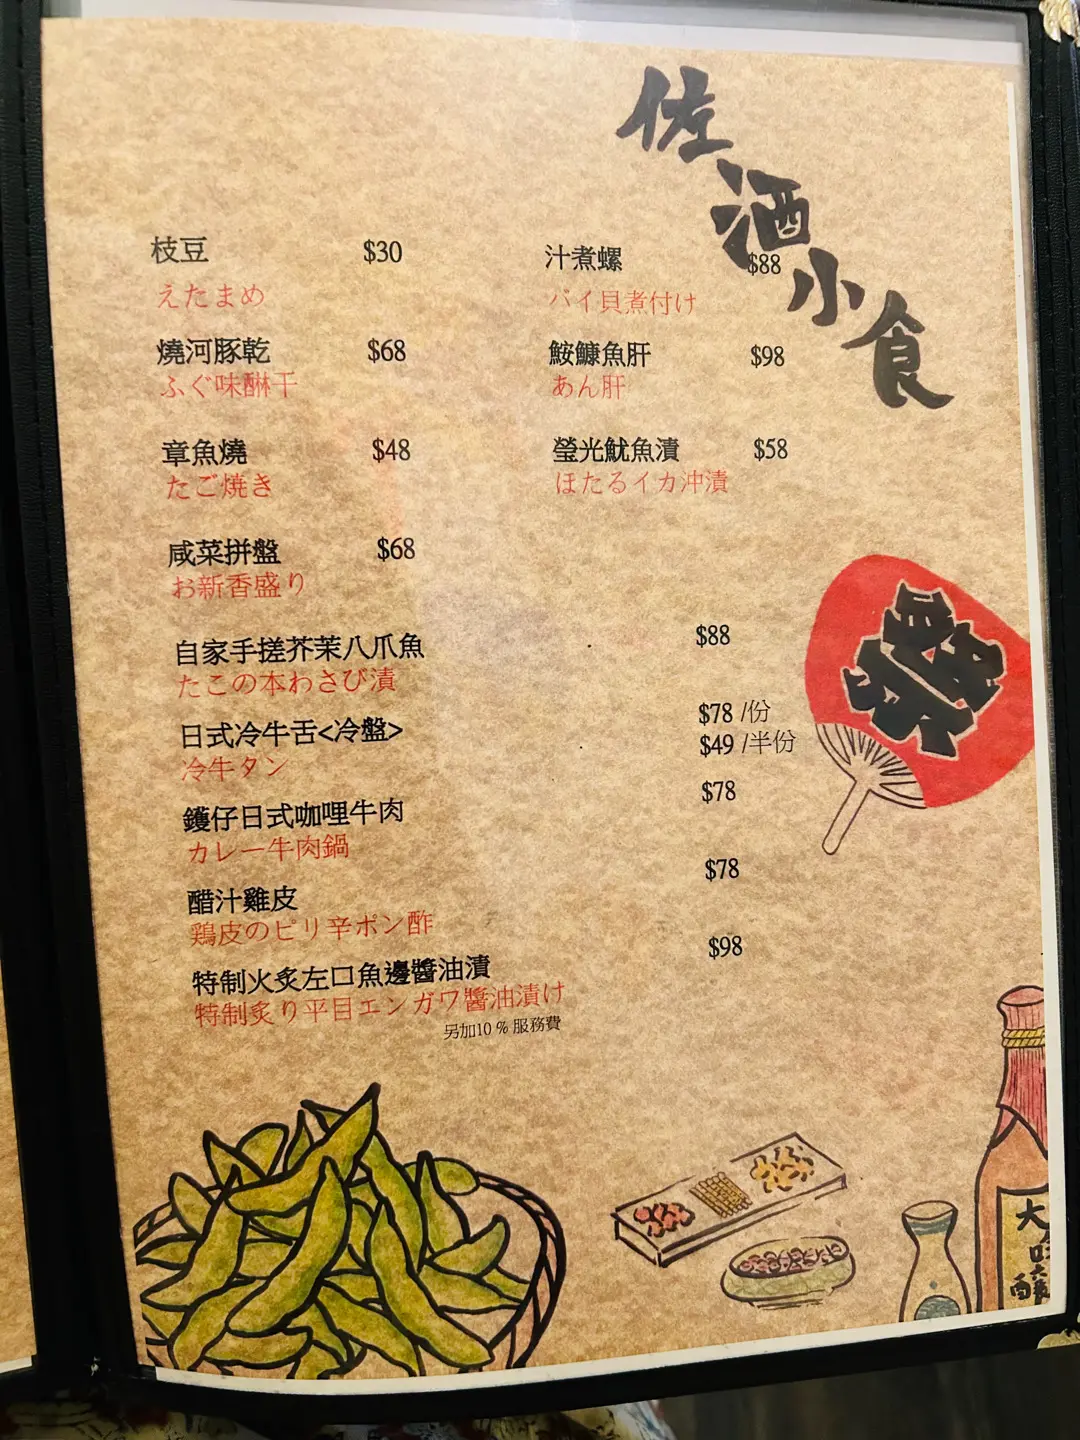 佐酒小食
枝豆 $30
えたまめ
燒河豚乾 $68
ふぐ味醂干
章魚燒 $48
たご焼き
咸菜拼盤 $68
お新香盛り
汁煮螺 $88
バイ貝煮付け
鮟鱇魚肝 $98
あん肝
瑩光魷魚漬 $58
ほたるイカ沖漬
自家手搓芥茉八爪魚 $88
たこの本わさび漬
日式冷牛舌<冷盤> $78 /份
$49 /半份
冷牛タン
鑊仔日式咖哩牛肉 $78
カレー牛肉鍋
醋汁雞皮 $78
鶏皮のピリ辛ポン酢
特制火炙左口魚邊醬油漬 $98
特制炙り平目エンガワ醬油漬け
另加10 % 服務費